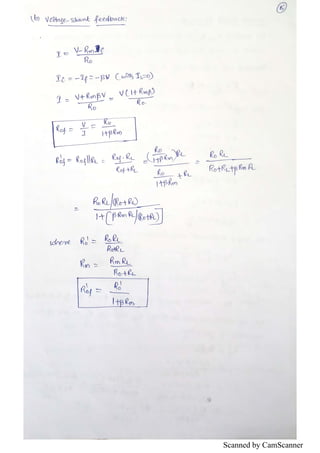 (iii) Voltage-shunt feedback:
I = V - Rm If / Ro
Ii = -If = -βV (with Is=0)
I = V + RmβV / Ro = V(1+Rmβ) / Ro
Rof = V/I = Ro / 1+βRm
R'of = Rof||RL = Rof·RL / Rof+RL = (Ro / 1+βRm) RL / Ro / 1+βRm + RL = Ro RL / Ro+RL+βRm RL
= Ro RL/(Ro+RL) / 1+[βRm RL/(Ro+RL)]
where Ro' = Ro RL / Ro+RL
Rm = Rm RL / Ro+RL
R'of = Ro' / 1+βRm
Scanned by CamScanner